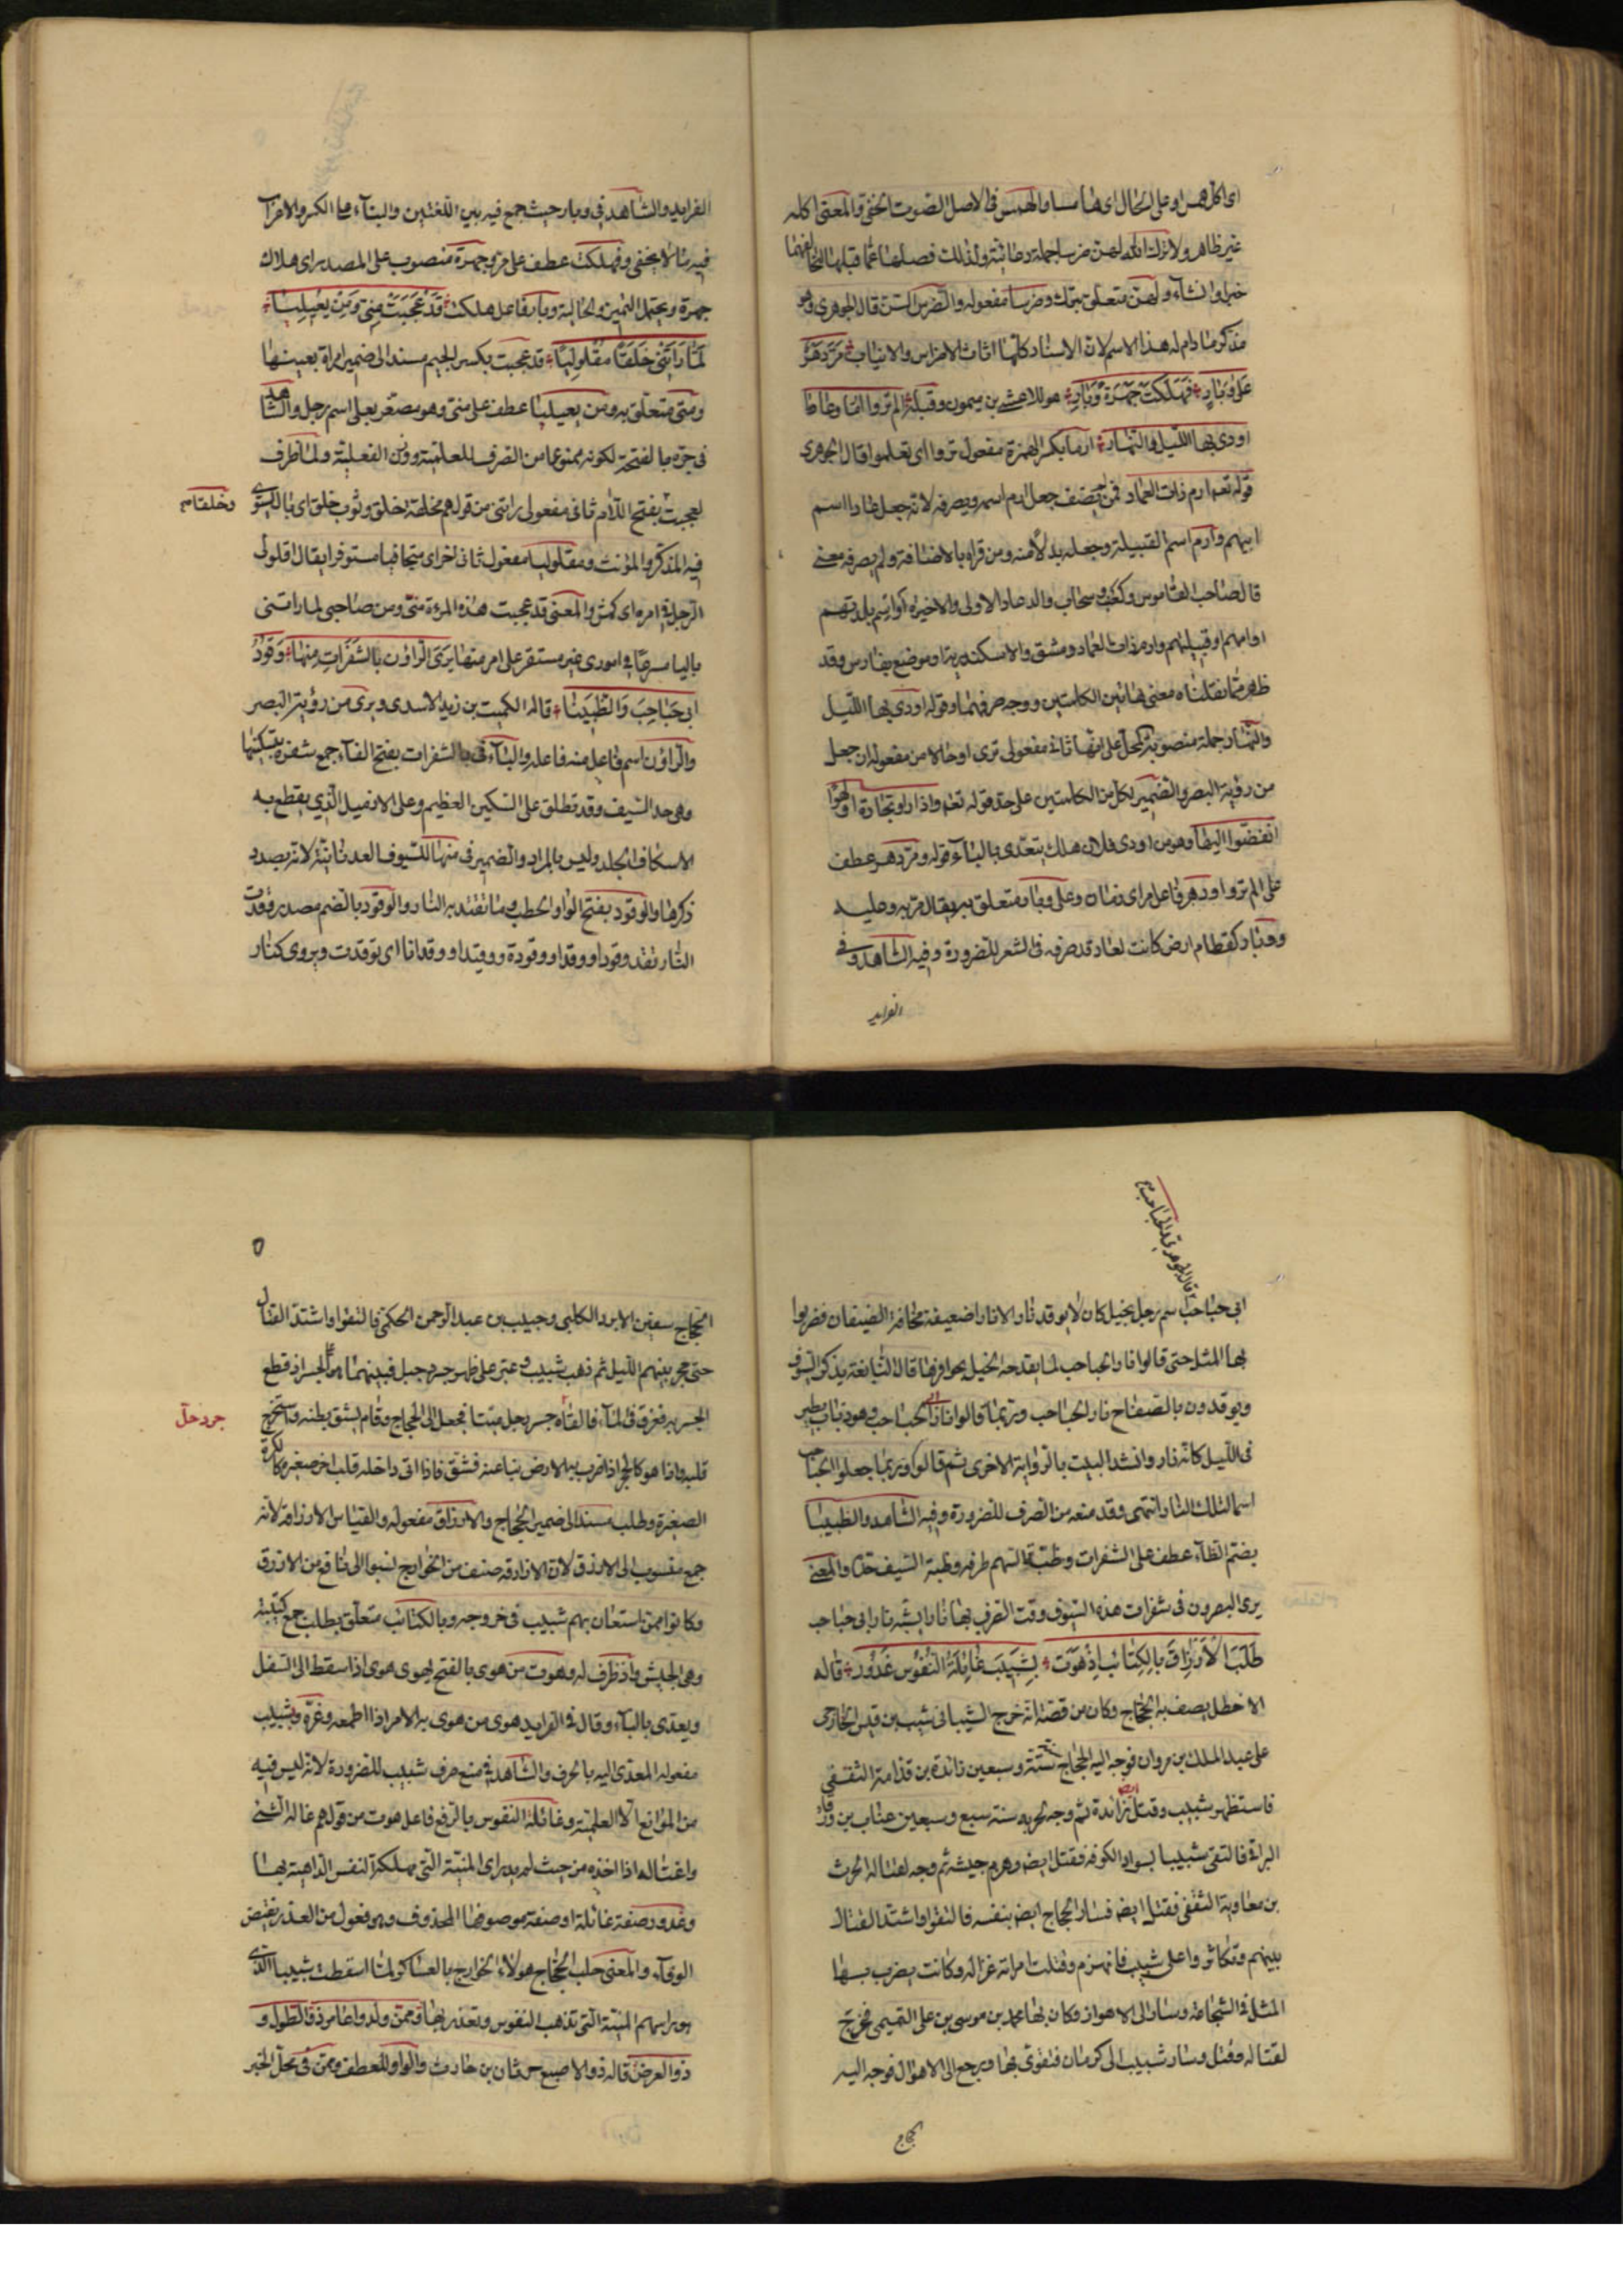 اى اكل همس او على الحال اى هامسا والهمس فى الاصل الصوت الخفى والمعنى اكله
غير ظاهر ولا ترك الله لهن ضرسا جملة دعائية ولذلك فصلها عما قبلها لتخالفهما
خبرا وانشآء ولهن متعلق بترك وضرسا مفعوله والضرس السن قال الجوهرى وهو
مذكر ما دام له هذا الاسم لان الاسنان كلها اناث الا الاضراس والانياب ومر دهر
على وبار فهلكت جهرة وبار هو للاعشى بن ميمون وقبله الم تروا ارما وعادا
اودى بها الليل والنهار ارما بكسر الهمزة مفعول تروا اى تعلموا قال الجوهرى
قوله تعه ارم ذات العماد فمن لم يضف جعل ارم اسمه ويصرفه لانه جعل عادا اسم
ابيهم وارم اسم القبيلة وجعله بدلا منه ومن قراه بالاضافة ولم يصرفه معنى
قال صاحب القاموس وكعنب وسحاب والد عاد الاولى والاخيرة او اسم بلدتهم
او امهم او قبيلتهم وارم ذات العماد دمشق والاسكندرية او موضع بفارس وقد
ظهر مما نقلناه معنى هاتين الكلمتين ووجه صرفهما وقوله اودى بها الليل
والنهار جملة منصوبة المحل على انها ثانى مفعولى ترى او حالا من مفعوله ان جعل
من رؤية البصر والضمير لكل من الكلمتين على حد قوله تعه واذا راوا تجارة او لهوا
انفضوا اليها وهو من اودى فلان هلك يتعدى بالبآء قوله ومر دهر عطف
على الم تروا ودهر فاعل مر اى زمان وعلى وبار متعلق به يقال مر به وعليه
ووبار كقطام ارض كانت لعاد قد صرفه فى الشعر للضرورة وفيه الشاهد وفى
الفرايد
الفرايد والشاهد فى وبار حيث جمع فيه بين اللغتين والبنآء على الكسر والاعراب
فيه ما لا يخفى وفهلكت عطف على مر وجهرة منصوب على المصدر اى هلاك
جهرة ويحتمل التميز والحالية وبار فاعل هلكت قد عجبت منى ومن يعيليا
لما راتنى خلقا مقلوليا قد عجبت بكسر الجيم مسند الى ضمير امراة بعينها
ومنى متعلق به ومن يعيليا عطف على منى وهو مصغر يعلى اسم رجل والشاهد
فى جره بالفتحة لكونه ممنوعا من الصرف للعلمية ووزن الفعلية ولما ظرف
لعجبت بفتح اللام ثانى مفعولى راتنى من قولهم مخلصة خلق وثوب خلق اى بال يستوى
وخلقا صح
فيه المذكر والمؤنث ومقلوليا مفعول ثانى اخر اى متجافيا مستوفزا يقال اقلولى
الرجل فى امره اى كمش والمعنى قد عجبت هذه المرءة منى ومن صاحبى لما راتنى
باليا مسرعا فى امورى غير مستقر على امر منها يرى الراؤن بالشفرات منها وقود
ابى حباحب والظبينا قاله الكميت بن زيد الاسدى ويرى من رؤية البصر
والراؤن اسم فاعل منه فاعله والبآء فى بالشفرات بفتح الفآء جمع شفرة بتسكينها
وهى حد السيف وقد تطلق على السكين العظيم وعلى الازميل الذى يقطع به
الاسكاف الجلد وليس بالمراد والضمير فى منها للسيوف العدنانية لانه بصدد
ذكرها والوقود بفتح الواو الحطب وما تتقد به النار والوقود بالضم مصدر وقدت
النار تقد وقودا ووقدا ووقودة ووقيدا ووقدانا اى توقدت ويروى كنار
قاله الجوهرى فى الحباحب صح
ابى حباحب اسم رجل بخيل كان لا يوقد نارا الا نارا ضعيفة مخافة الضيفان فضربوا
بها المثل حتى قالوا نار الحباحب لما يقدحه الخيل بحوافرها قال النابغة يذكر السيوف
ويوقدون بالصفاح نار الحباحب وربما قالوا نار ابى الحباحب وهو ذباب يطير
فى الليل كانه نار وانشد البيت بالرواية الاخرى ثم قالوا وربما جعلوا الحباحب
اسما لتلك النار انتهى وقد منعه من الصرف للضرورة وفيه الشاهد والظبينا
بضم الظآء عطف على الشفرات وظبة السهم طرفه وظبة السيف حده والمعنى
يرى المبصرون فى شفرات هذه السيوف وقت الضرب بها نارا تشبه نار ابى حباحب
طلب الازارق بالكتائب اذ هوت بشبيب غائلة النفوس غدور قاله
الاخطل يصف به الحجاج وكان من قصته انه خرج الشيبانى شبيب بن قيس الخارجى
على عبد الملك بن مروان فوجه اليه الحجاج سنة ستة وسبعين زائدة بن قدامة الثقفى
فاستظهر شبيب وقتل زائدة ايضه ثم وجه لحربه سنة سبع وسبعين عتاب بن ورقاء
البراى فالتقى شبيبا بسواد الكوفة فقتل ايضه وهزم جيشه ثم وجه لقتاله الحرث
بن معاوية الثقفى فقتل ايضه فسار الحجاج ايضه بنفسه فالتقوا واشتد القتال
بينهم وتكاثروا على شبيب فانهزم وقتلت امراته غزالة وكانت يضرب بها
المثل فى الشجاعة وسار الى الاهواز وكان بها محمد بن موسى بن على التميمى فخرج
لقتاله وقتل وسار شبيب الى كرمان فتقوى بها ورجع الى الاهواز فوجه اليه
الحجاج
۵
الحجاج سفين الابرد الكلبى وحبيب بن عبد الرحمن الحكمى فالتقوا واشتد القتال
حتى حجز بينهم الليل ثم ذهب شبيب وعبر على ظهر جسر دجيل فبينهما هو على الجسر اذ قطع
الجسر به فغرق فى المآء فالقاه جسر دجيل ميتا فحمل الى الحجاج وقام بشق بطنه واستخرج
قلبه فاذا هو كالحجر اذا ضرب به الارض نبا عنه فشق فاذا فى داخله قلب اخر صغير كالكرة
الصغيرة وطلب مسند الى ضمير الحجاج والازارق مفعوله والقياس الازارقة لانه
جمع منسوب الى الازرق لان الازارقة صنف من الخوارج نسبوا الى نافع بن الازرق
وكانوا ممن استعان بهم شبيب فى خروجه وبالكتائب متعلق بطلب جمع كتيبة
وهى الجيش واذ ظرف له وهوت من هوى بالفتح يهوى هوى اذا سقط الى السفل
ويعدى بالبآء وقال فى الفرايد هوى من هوى به الامر اذا اطمعه وغره وبشبيب
مفعوله المعدى اليه بالحرف والشاهد فى منع صرف شبيب للضرورة لانه ليس فيه
من الموانع الا العلمية وغائلة النفوس بالرفع فاعل هوت من قولهم غاله الشئ
واغتاله اذا اخذه من حيث لم يدر اى المنية التى مهلكة النفس الذاهبة بها
وغدور صفة غائلة او صفة موصوفها المحذوف وهو فعول من الغدر نقيض
الوفآء والمعنى طلب الحجاج هولاء الخوارج بالعساكر لما اسقطت شبيبا الذى
هو راسهم المنية التى تذهب النفوس وتغدر بها وممن ولدوا عامر ذو الطول و
ذو العرض قاله ذو الاصبع حرثان بن حارث والواو للعطف وممن فى محل الخبر